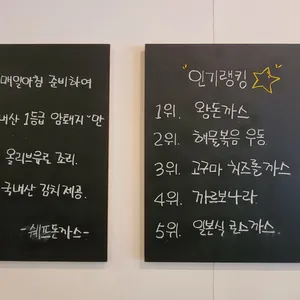 매일아침 준비하여
내산 1등급 암돼지"만
올리브유로 조리.
국내산 김치 제공.
-쉐프돈까스-
"인기랭킹"
1위. 왕돈까스
2위. 해물볶음 우동.
3위. 고구마 치즈롤까스
4위. 까르보나라.
5위. 일본식 로스까스.